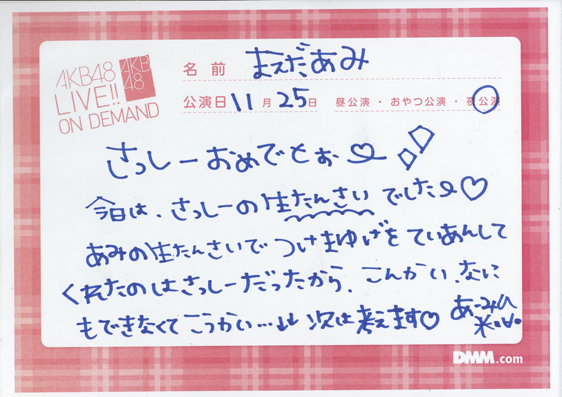 AKB48
LIVE!!
ON DEMAND
AKB
48
名前 まえだあみ
公演日 11月25日 昼公演・おやつ公演・夜公演
さっしーおめでとぉ
今日は、さっしーの生たんさいでした♡
あみの生たんさいでつけまゆげをていあんして
くれたのはさっしーだったから、こんかい、なに
もできなくてこうかい…↓↓ 次は考えます♡
あーみぃ
DMM.com